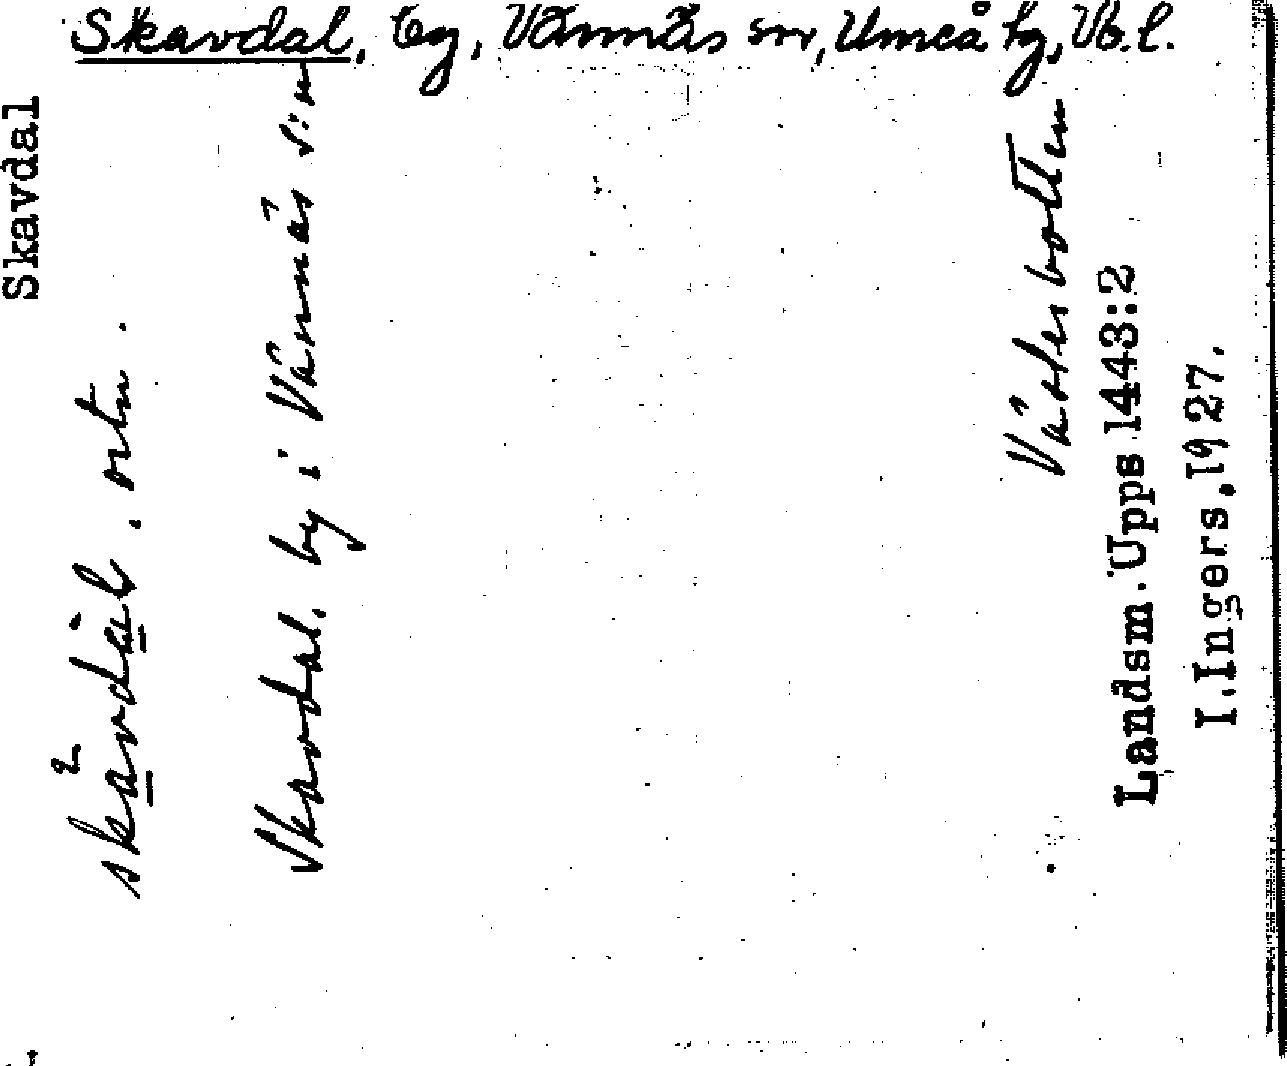 Skavdal, by, Vännäs sn, Umeå tg, Vb.l.
Skavdal
skavdal. ortn.
Skavdal, by i Vännäs s:n
Västerbotten
Landsm. Upps 1443:2
I.Ingers, 1927.